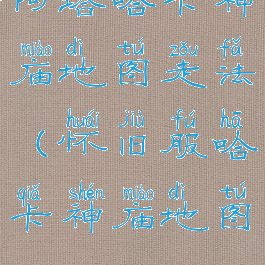 阿塔哈卡神
miào dì tú zǒu fǎ
庙地图走法
huái jiù fú hā
（怀旧服哈
qiǎ shén miào dì tú
卡神庙地图